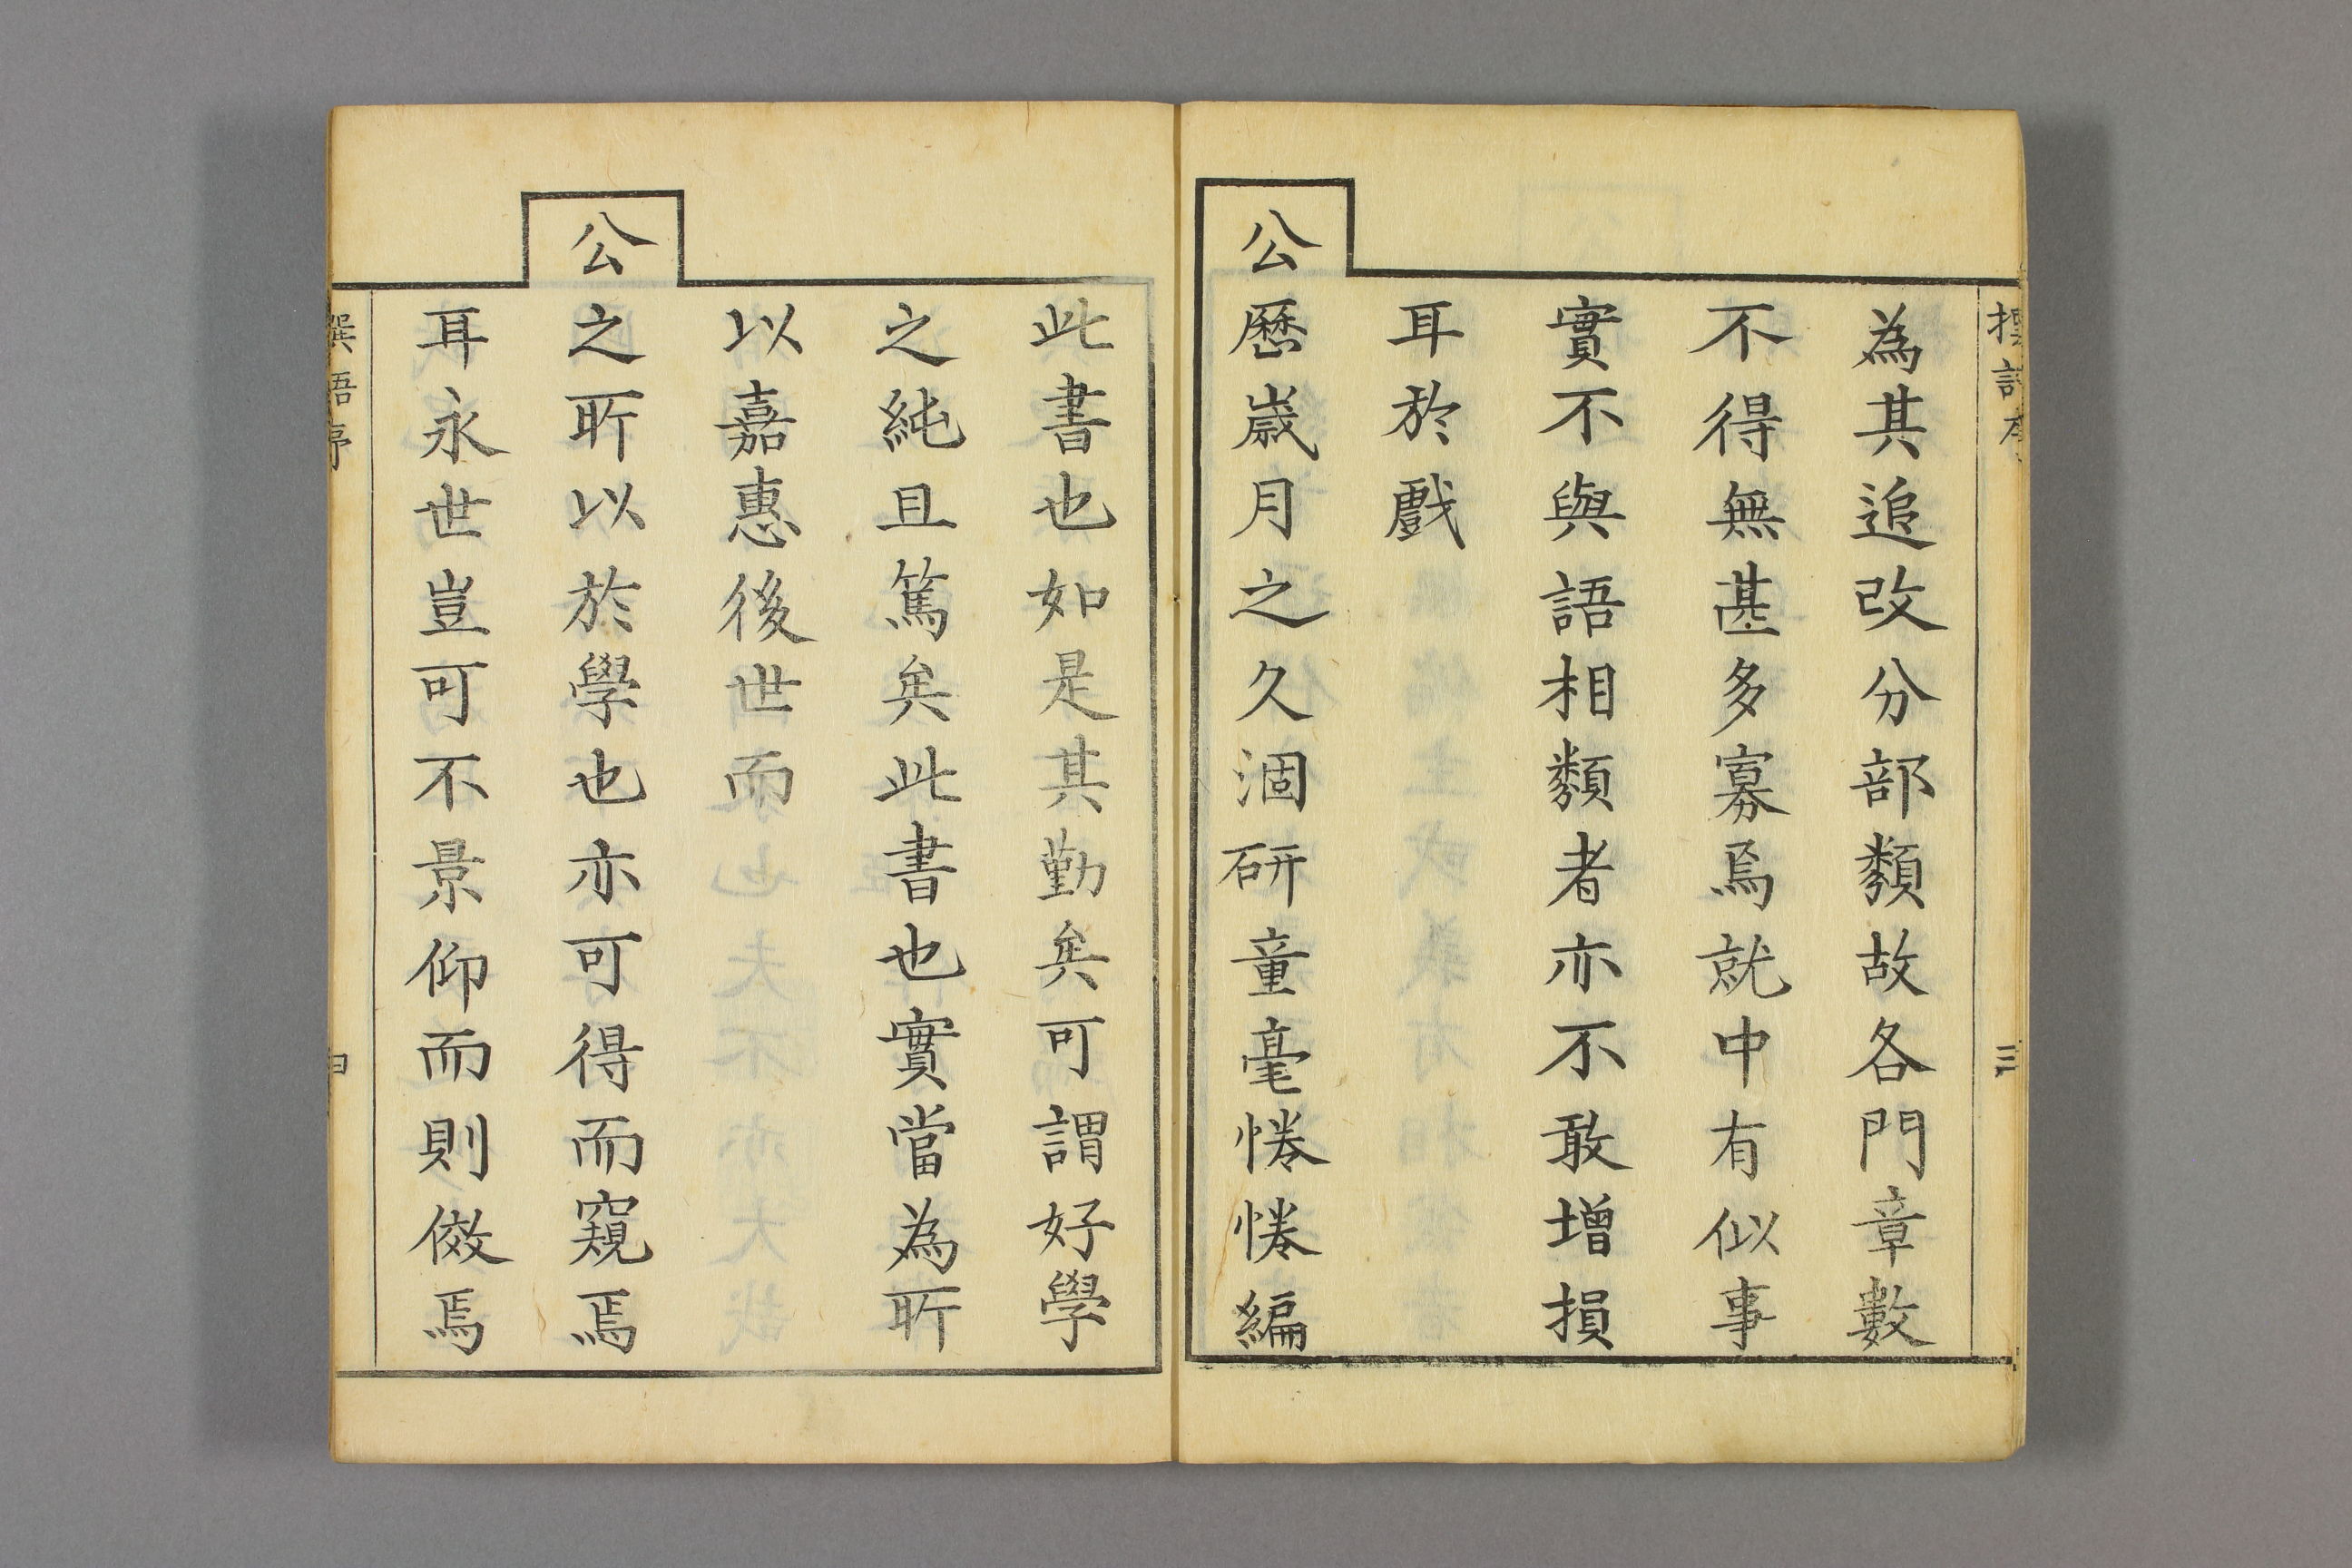 為其追改分部類故各門章數
不得無甚多寡焉就中有似事
實不與語相類者亦不敢增損
耳於戲
公歷歲月之久涸研童毫惓惓編
此書也如是其勤矣可謂好學
之純且篤矣此書也實當為所
以嘉惠後世而
公之所以於學也亦可得而窺焉
耳永世豈可不景仰而則傚焉
撰語序